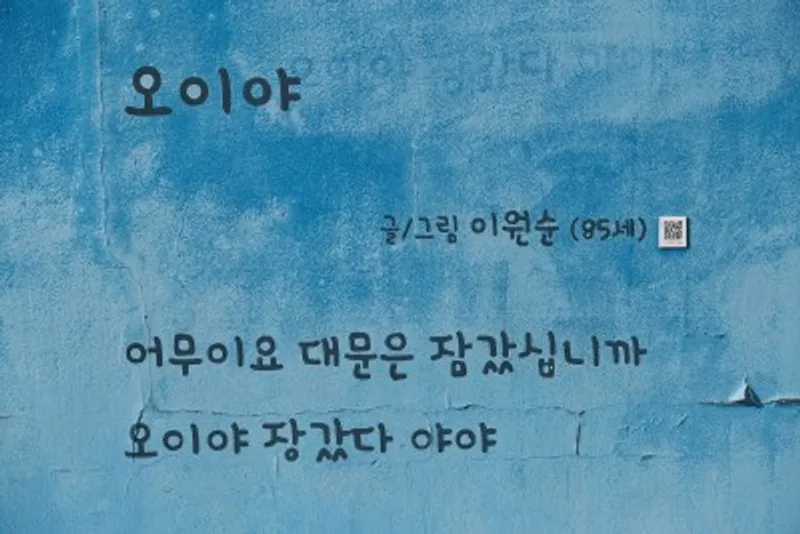 오이야
글/그림 이원순 (85세)
어무이요 대문은 잠갔십니까
오이야 장갔다 야야